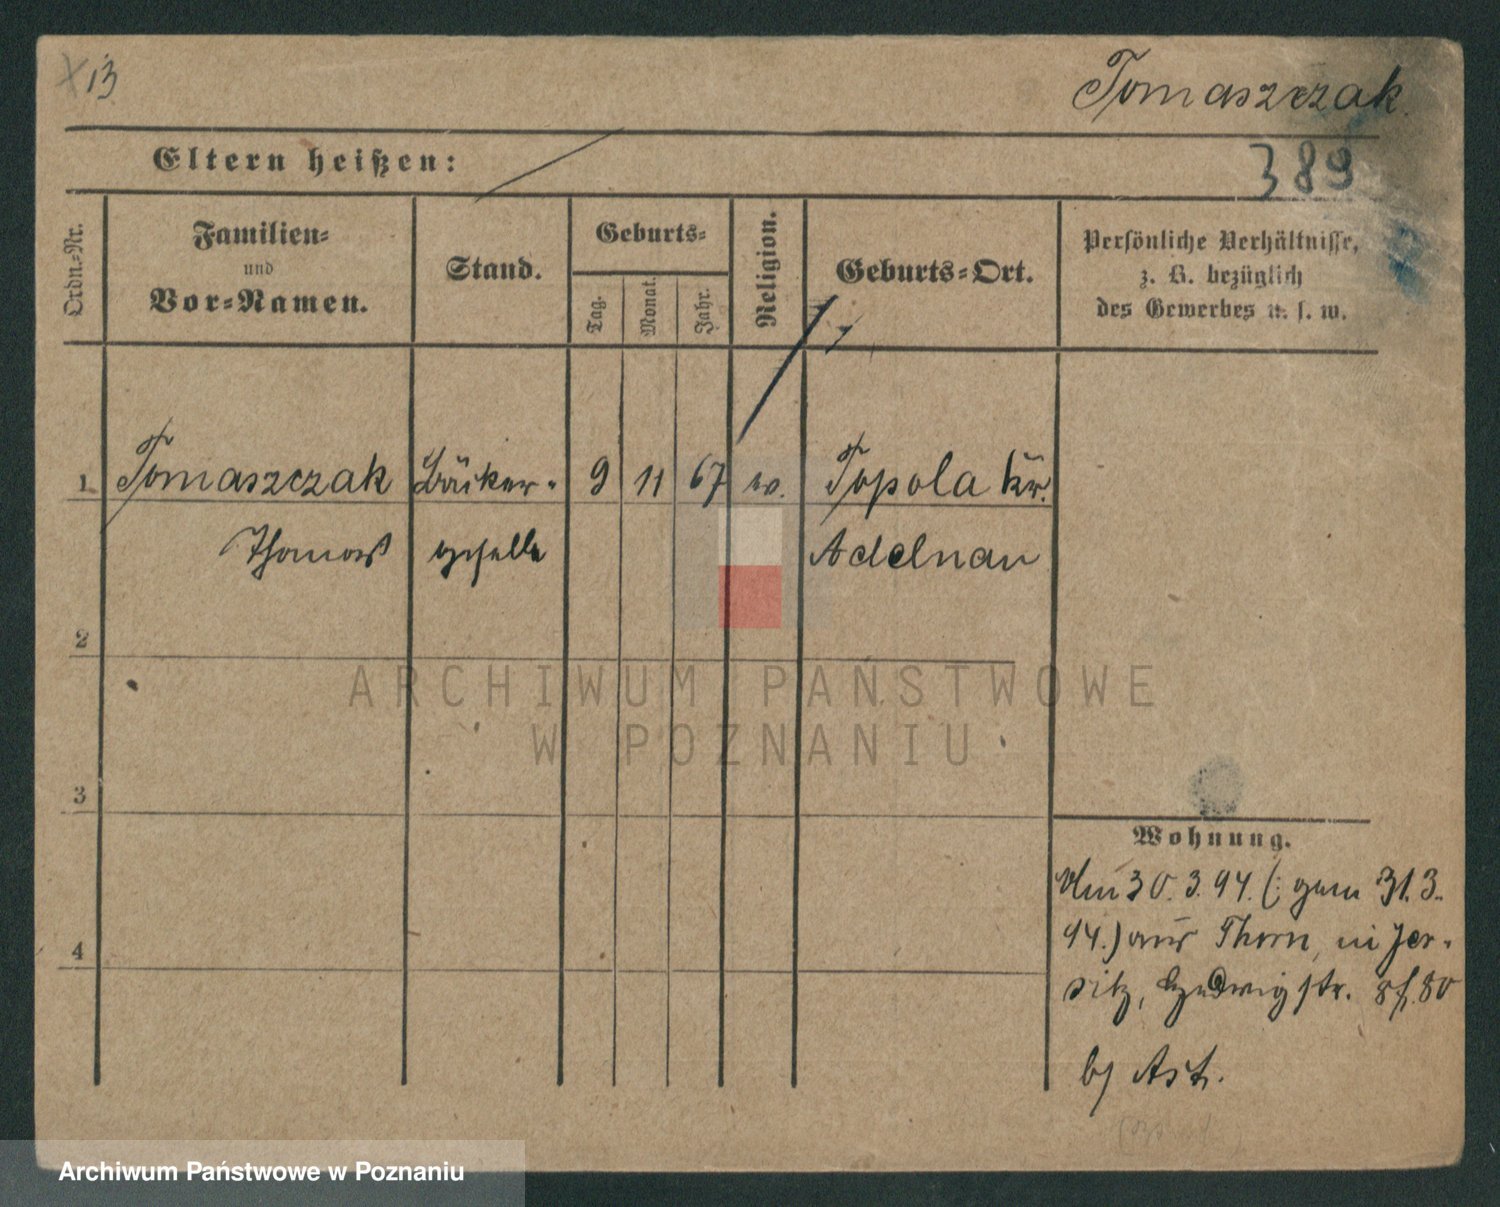 13
Tomaszczak
Eltern heißen:
389
Ordn.=Nr.
Familien=
und
Vor=Namen.
Stand.
Geburts=
Tag.
Monat.
Jahr.
Religion.
Geburts=Ort.
Persönliche Verhältnisse,
z. B. bezüglich
des Gewerbes u. s. w.
1 Tomaszczak Bäcker- 9 11 67 w. Topola Kr.
Thomas geselle Adelnau
2
3
4
Wohnung.
Am 30.3.94. (: gem 31.3.
94.) aus Thorn, in Jer-
sitz, Hedwigstr. 80
b/ Ast.
ARCHIWUM PAŃSTWOWE
W POZNANIU
Archiwum Państwowe w Poznaniu